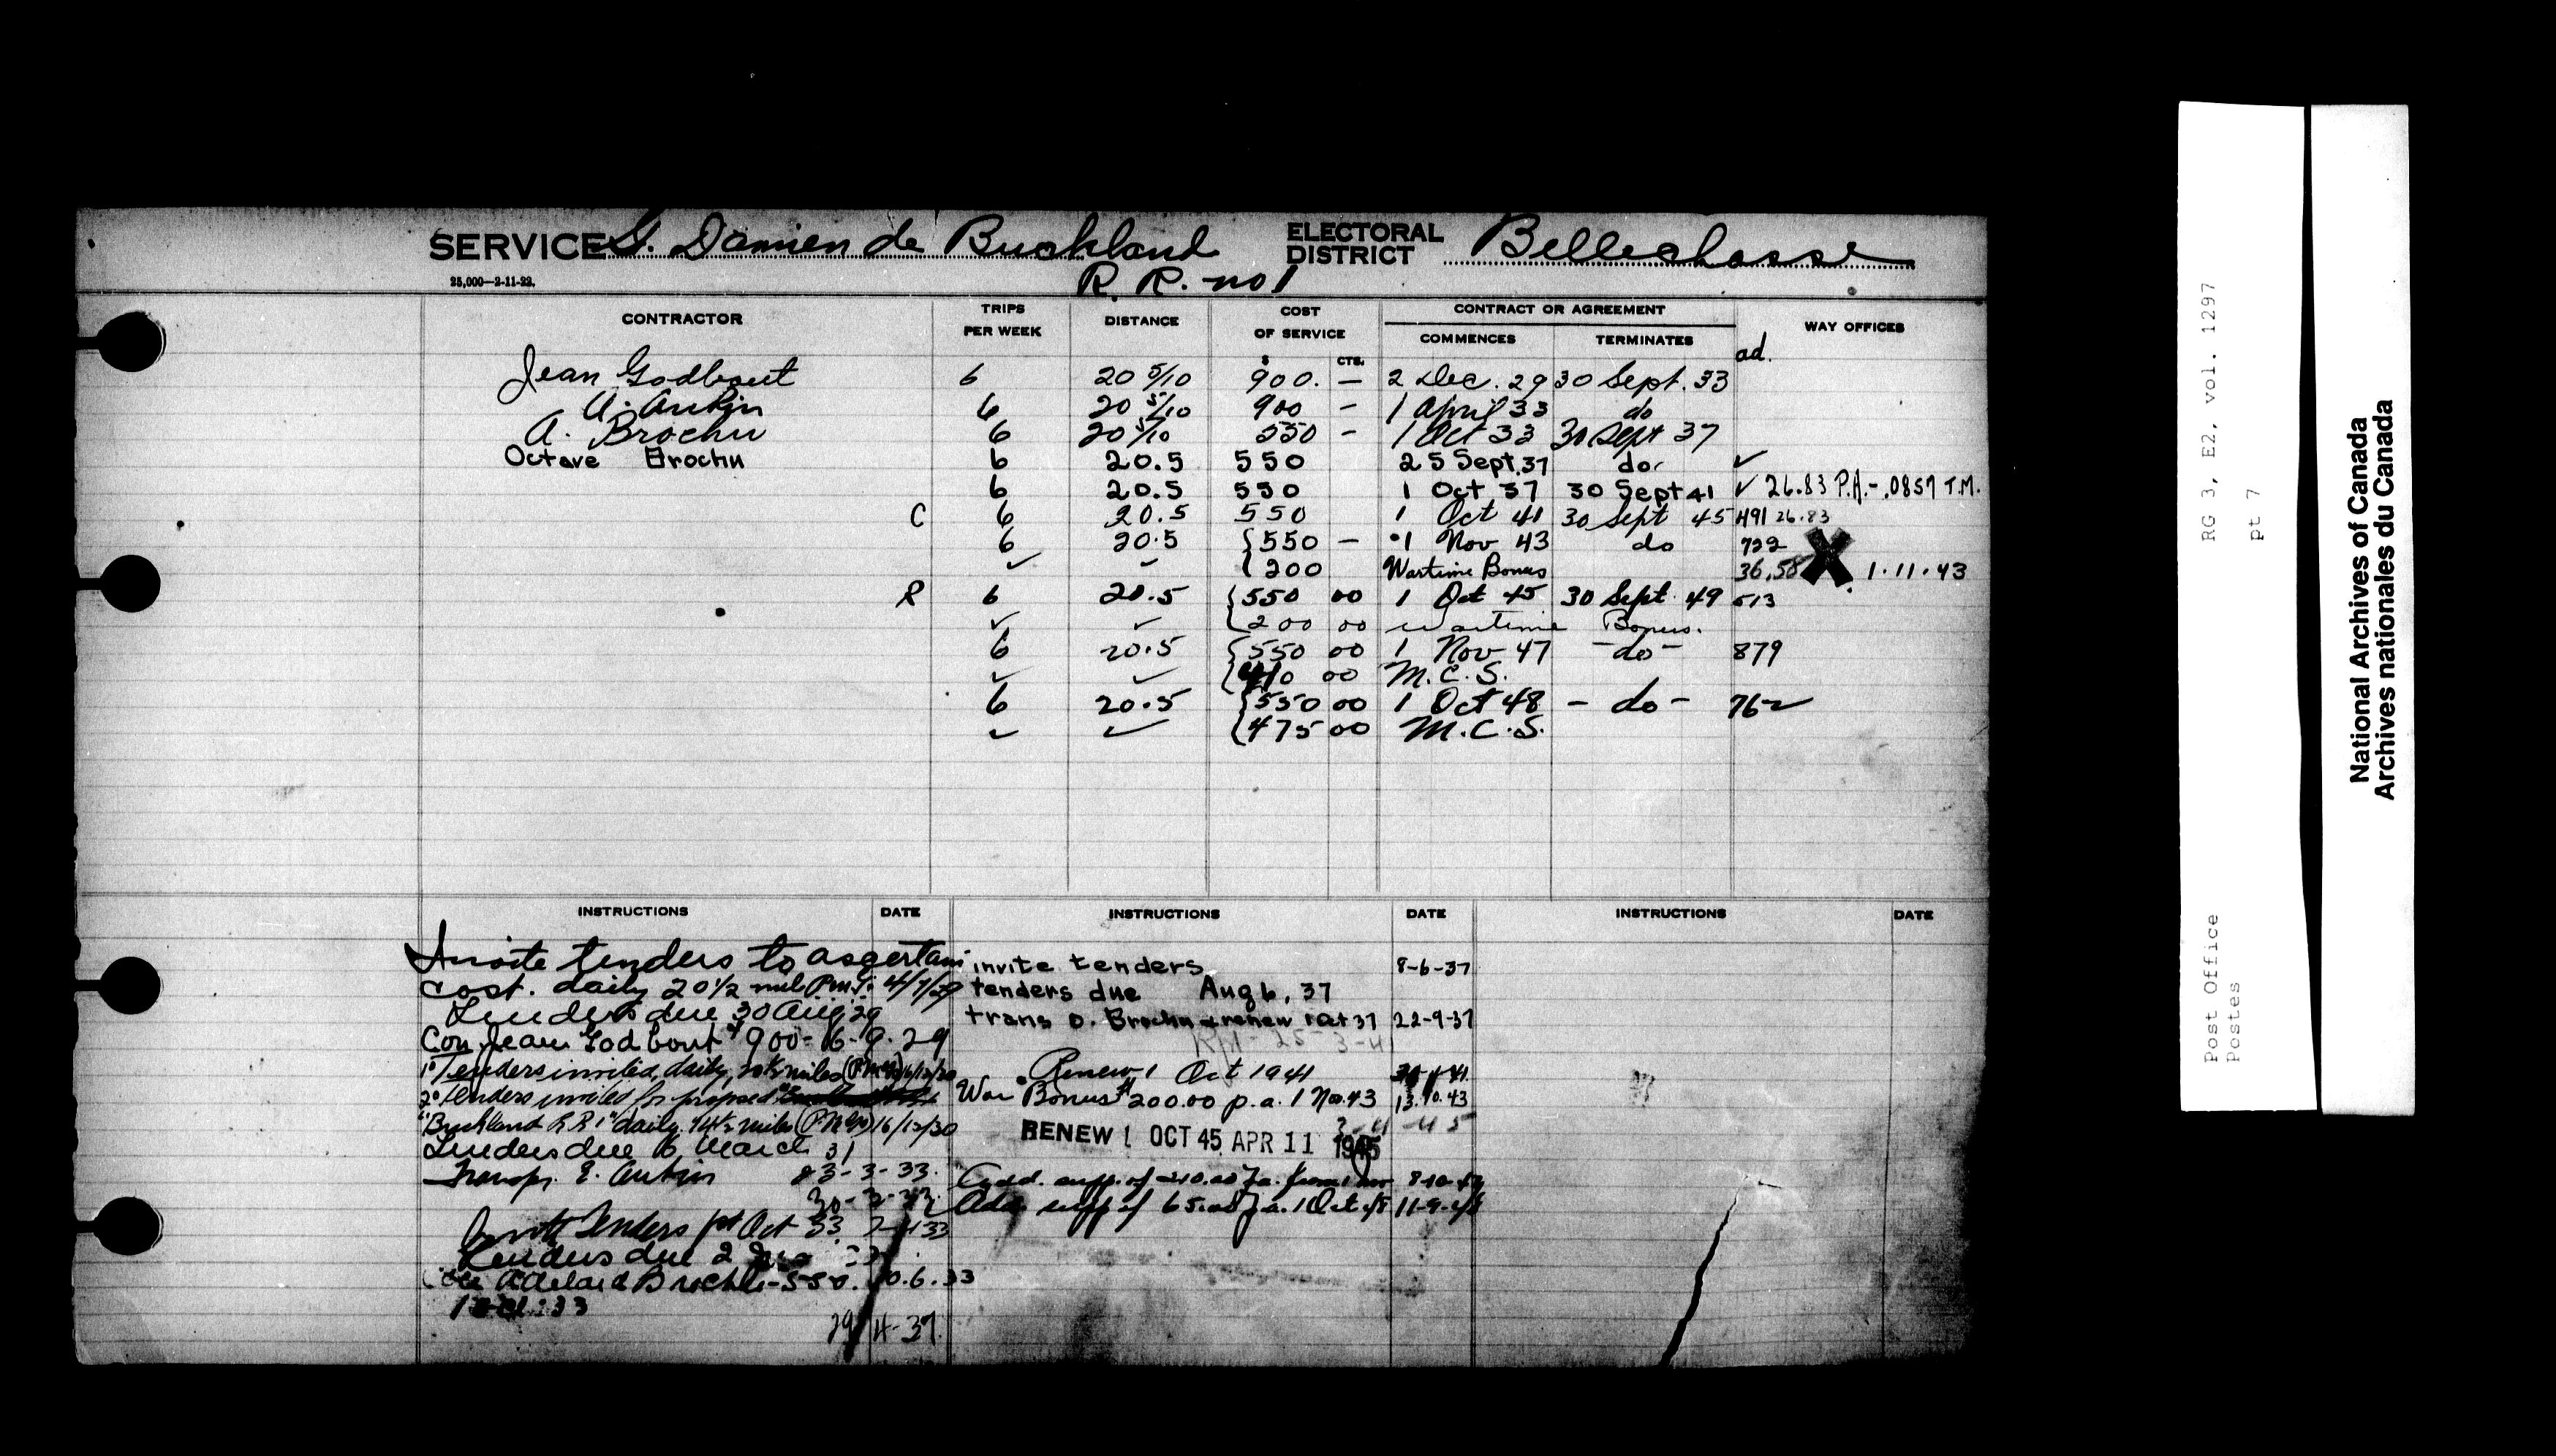 SERVICE St. Damien de Buckland
R. R. no 1
ELECTORAL DISTRICT Bellechasse
25,000—2-11-22.
CONTRACTOR TRIPS PER WEEK DISTANCE COST OF SERVICE CONTRACT OR AGREEMENT WAY OFFICES
$ CTS. COMMENCES TERMINATES
ad.
Jean Godbout 6 20 5/10 900. — 2 Dec. 29 30 Sept. 33
Aubin 6 20 5/10 900 — 1 April 33 do
A. Brochu 6 20 5/10 550 — 1 Oct 33 30 Sept 37
Octave Brochu 6 20.5 550 25 Sept. 37 do. ✓
6 20.5 550 1 Oct 37 30 Sept 41 ✓ 26.83 P.A. - .0857 T.M.
C 6 20.5 550 1 Oct 41 30 Sept 45 491 26.83
6 20.5 {550 — 1 Nov 43 do 722
✓ {200 Wartime Bonus 36.58 X 1.11.43
R 6 20.5 {550 00 1 Oct 45 30 Sept 49 513
✓ ✓ {200 00 Wartime Bonus.
6 20.5 {550 00 1 Nov 47 -do- 879
✓ ✓ {410 00 M.C.S.
6 20.5 {550 00 1 Oct 48 - do - 762
✓ ✓ {475 00 M.C.S.
INSTRUCTIONS DATE
Invite tenders to asgertain
cost. daily 20½ mil 4/7/29
Tenders due 30 Aug 29
Con. Jean Godbout $900- 16-9-29
1° Tenders invited, daily, 20½ miles
2° Tenders invited for proposed
"Buckland R R 1" daily. 14½ miles 16/12/30
Tenders due 6 March 31
Transfr. E. Aubin 23-3-33.
Invite Tenders 1st Oct 33.
Tenders due 2
Adelard Brochu - 550. 10.6.33
1 Oct. 33
29 4-37.
INSTRUCTIONS DATE
invite tenders 8-6-37
tenders due Aug 6, 37
trans O. Brochu & renew 1 Oct 37 22-9-37
Renew 1 Oct 1941
War Bonus $200.00 p.a. 1 Nov. 43 13.10.43
RENEW 1 OCT 45 APR 11 1945
Add. supp. of 210.00 p.a. from 1 Nov 8-10-47
Add. supp of 65.00 p.a. 1 Oct 48 11-9-48
INSTRUCTIONS DATE
RG 3, E2, vol. 1297
pt 7
Post Office
Postes
National Archives of Canada
Archives nationales du Canada